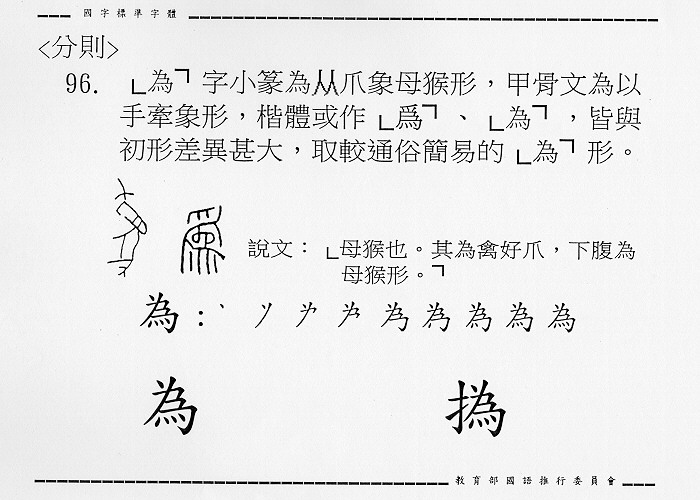 國字標準字體
<分則>
96. 「為」字小篆為从爪象母猴形，甲骨文為以
手牽象形，楷體或作「爲」、「為」，皆與
初形差異甚大，取較通俗簡易的「為」形。
說文：「母猴也。其為禽好爪，下腹為
母猴形。」
為：
為 㧪
教育部國語推行委員會